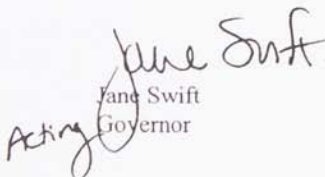 Jane Swift
Jane Swift
Acting Governor